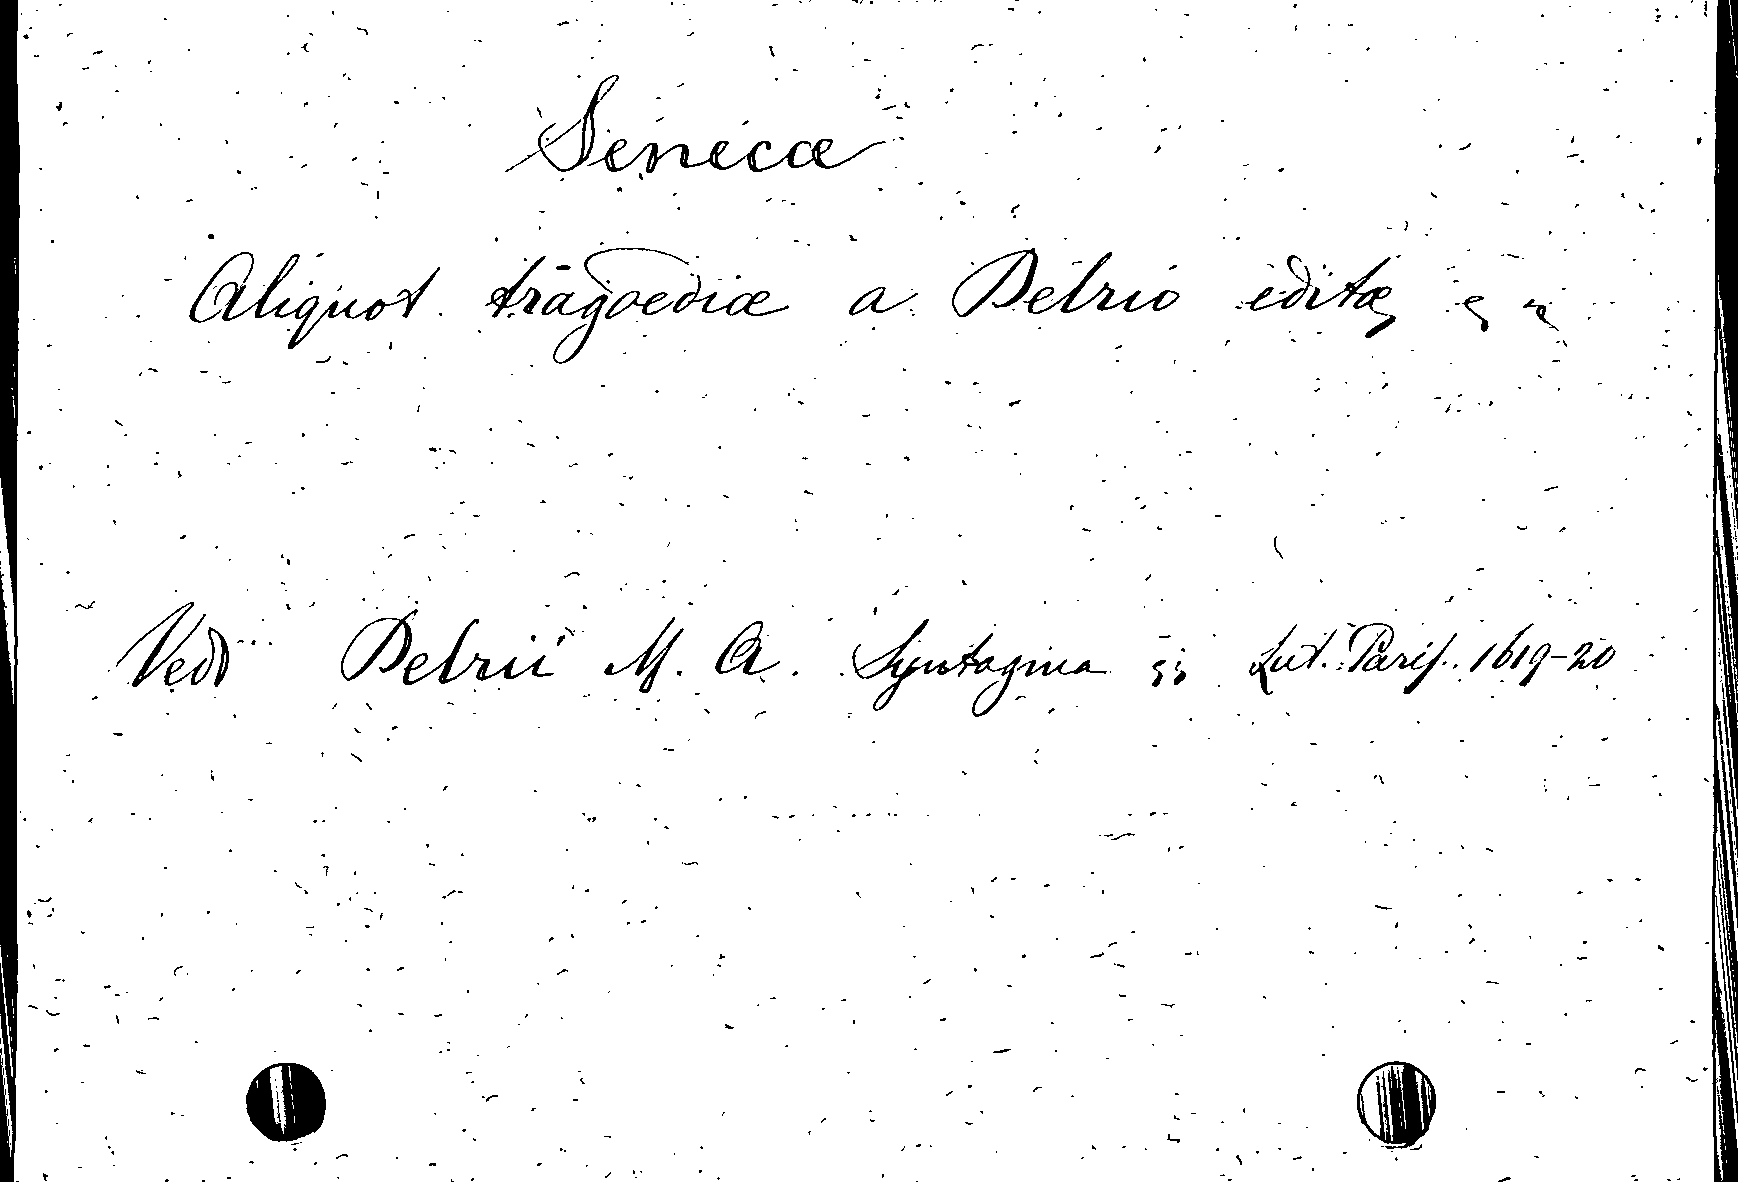 Senecæ
Aliquot tragoediæ a Delrio editæ
Vedi Delrii M. A. Syntagma Lut. Paris. 1619-20